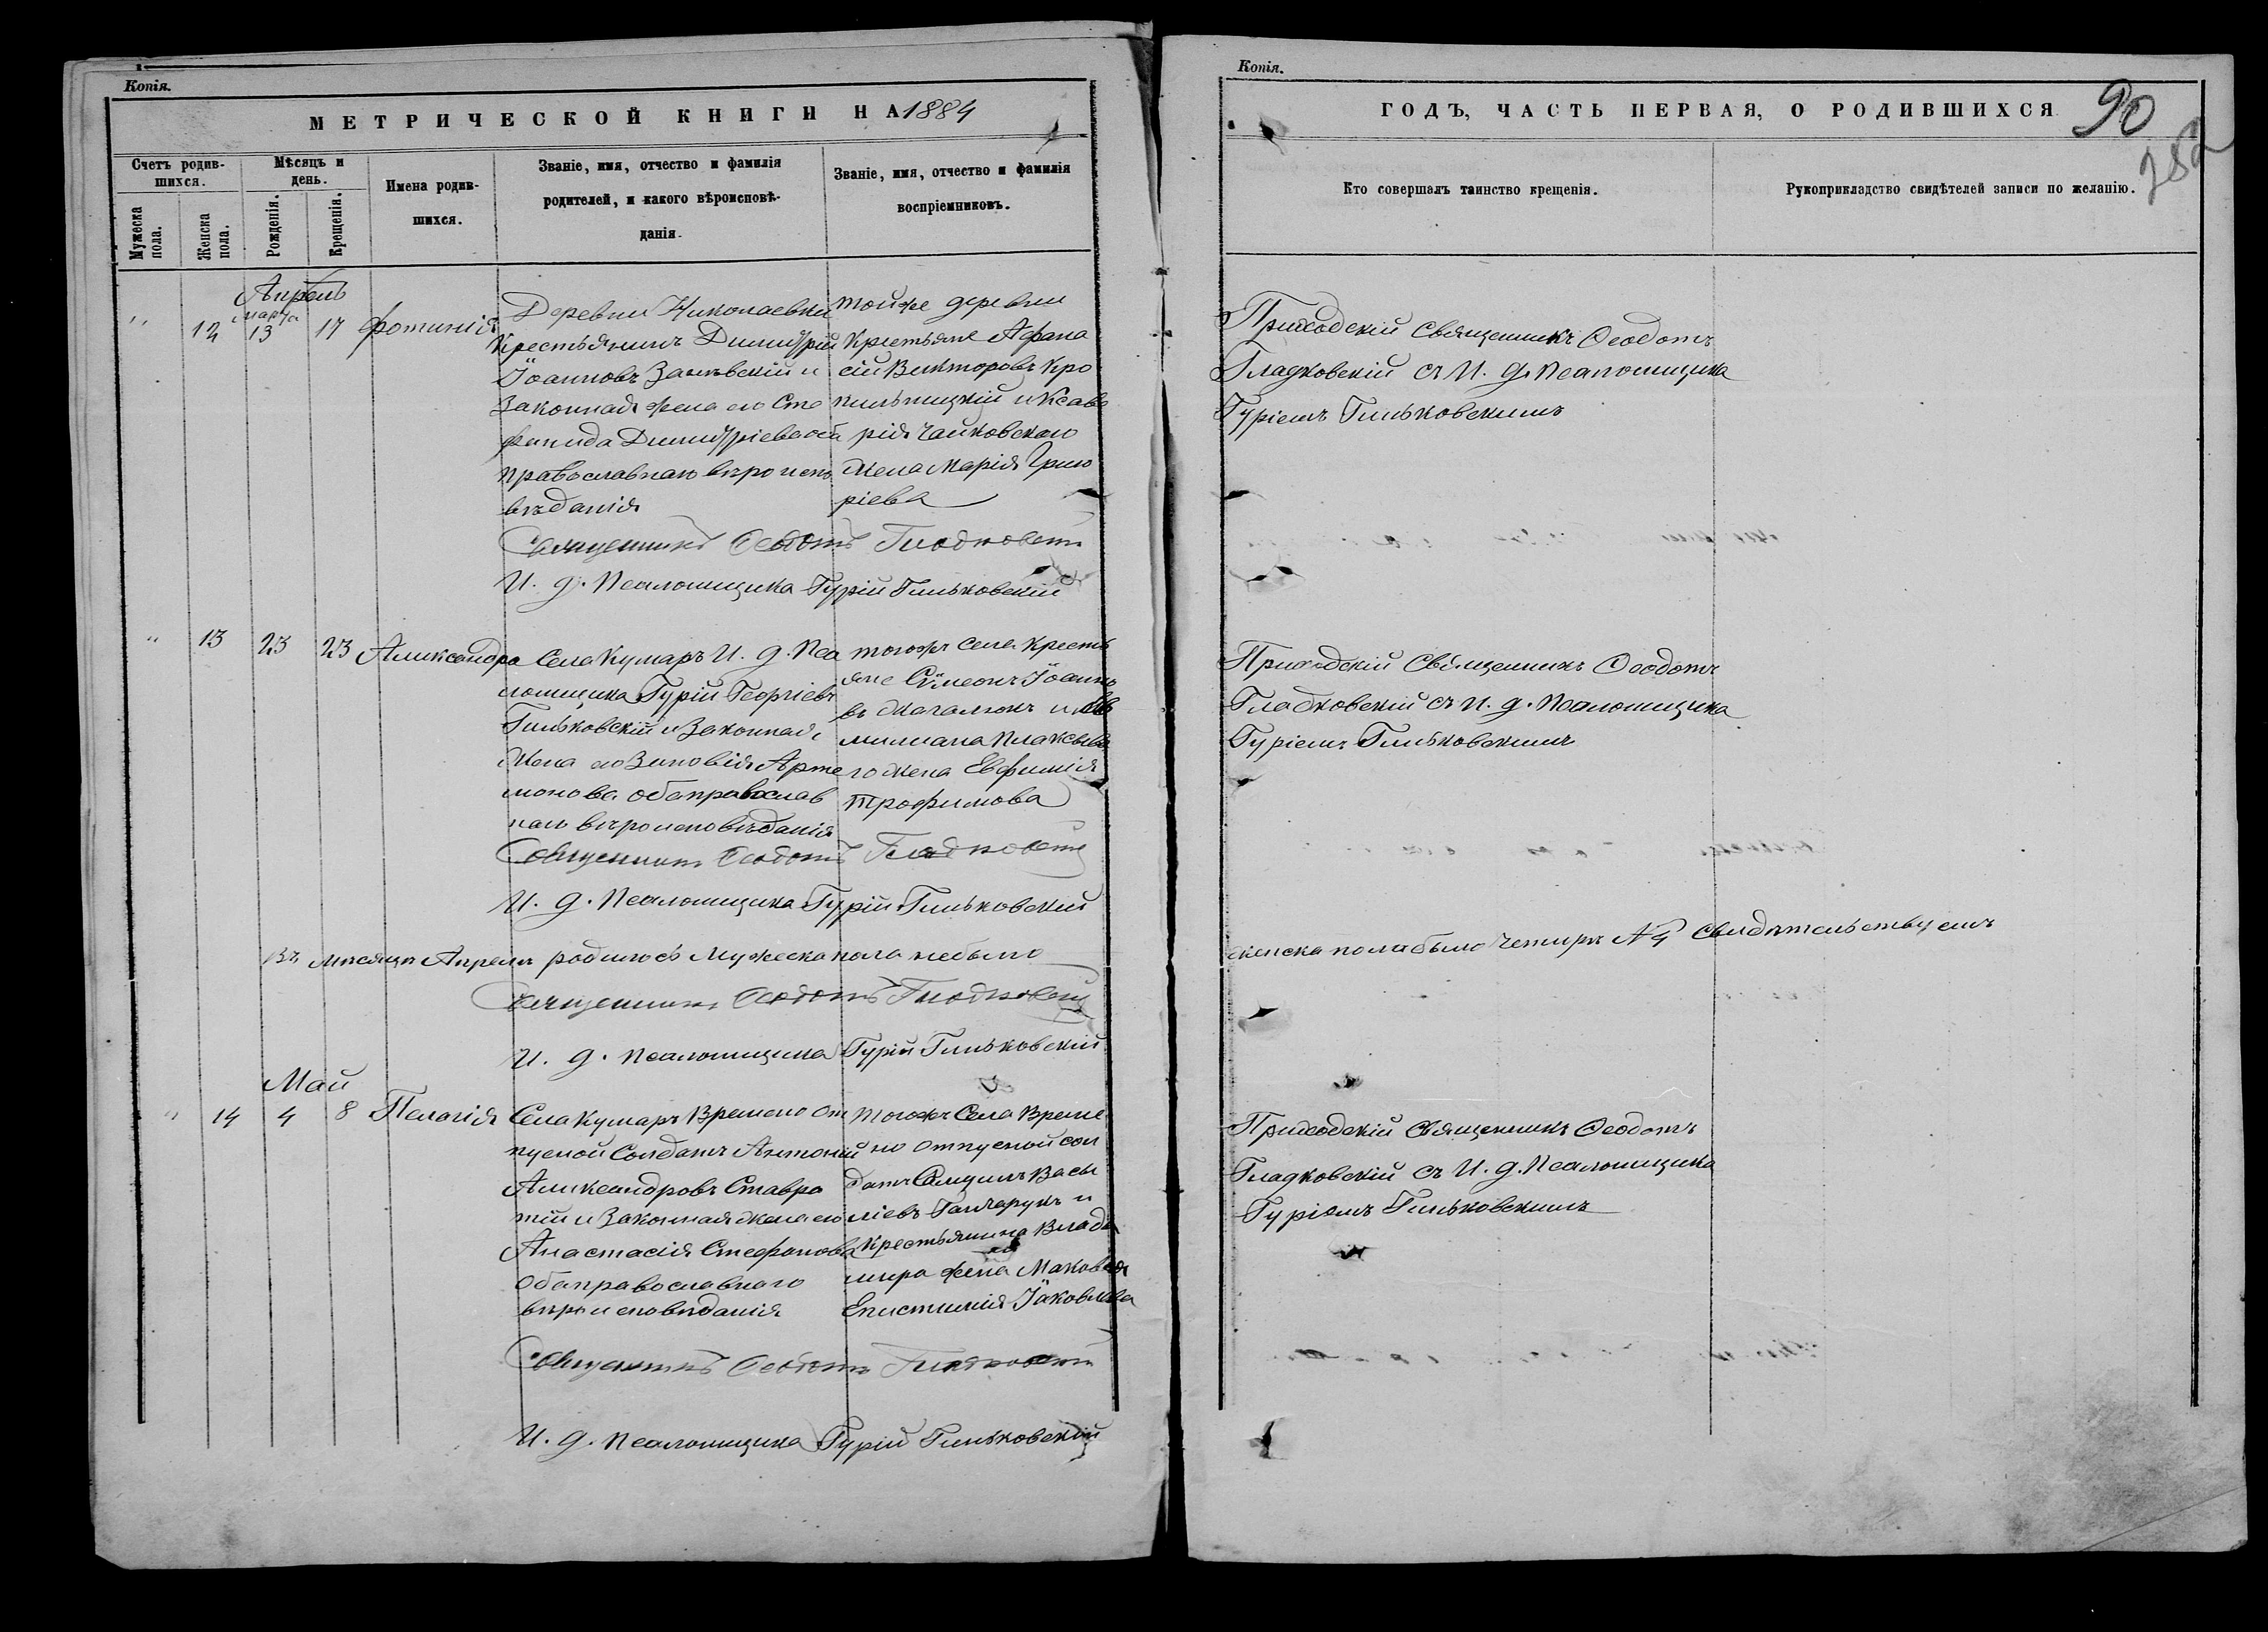 Копія.
МЕТРИЧЕСКОЙ КНИГИ НА 1884
Счетъ родив-
шихся.
Мужеска
пола.
Женска
пола.
Мѣсяцъ и
день.
Рожденія.
Крещенія.
Имена родив-
шихся.
Званіе, имя, отчество и фамилія
родителей, и какого вѣроисповѣ-
данія.
Званіе, имя, отчество и фамилія
воспріемниковъ.
Апрель
марта
" 12 13 17 Фотинія
Деревни Николаевки
Крестьянинъ Димитрій
Іоанновъ и
Законная жена его Сте
фанида Димитріева оба
православнаго вѣроиспо
вѣданія
тойже деревни
Крестьяне Афана
сій Викторовъ Кро
пильницкій и Ксаве
рія Чайковскаго
жена Марія Григо
ріева
Священникъ Ѳеодотъ Гладковскій
И. д. Псаломщика Гурій Гиньковскій
" 13 23 23 Александра
Села Кумаръ И. д. Пса
ломщика Гурій Георгіевъ
Гиньковскій и Законная
Жена его Зиновія Арте
монова оба православ
наго вѣроисповѣданія
тогожъ села Кресть
яне Сѵмеонъ Іоанно
въ и
милиана
го жена Евфимія
Трофимова
Священникъ Ѳеодотъ Гладковскій
И. д. Псаломщика Гурій Гиньковскій
Въ мѣсяцѣ Апрелѣ родилось Мужеска пола небыло
Священникъ Ѳеодотъ Гладковскій
И. д. Псаломщика Гурій Гиньковскій
Май
" 14 4 8 Пелагія
Села Кумаръ Времено От
пусной Солдатъ Антоній
Александровъ Ставра
тій и Законная жена его
Анастасія Стефанова
Оба православнаго
вѣроисповѣданія
Тогожъ Села Време
но отпусной сол
датъ Васи
ліевъ Ганчарукъ и
Крестьянина Влади
мира жена
Епистимія Іаковлева
Священникъ Ѳеодотъ Гладковскій
И. д. Псаломщика Гурій Гиньковскій
Копія.
ГОДЪ, ЧАСТЬ ПЕРВАЯ, О РОДИВШИХСЯ
90
Кто совершалъ таинство крещенія.
Рукоприкладство свидѣтелей записи по желанію.
Приходскій Священникъ Ѳеодотъ
Гладковскій съ И. д. Псаломщика
Гуріемъ Гиньковскимъ
Приходскій Священникъ Ѳеодотъ
Гладковскій съ И. д. Псаломщика
Гуріемъ Гиньковскимъ
женска пола было Четыре №4 Свидѣтельствуемъ
Приходскій Священникъ Ѳеодотъ
Гладковскій съ И. д. Псаломщика
Гуріемъ Гиньковскимъ